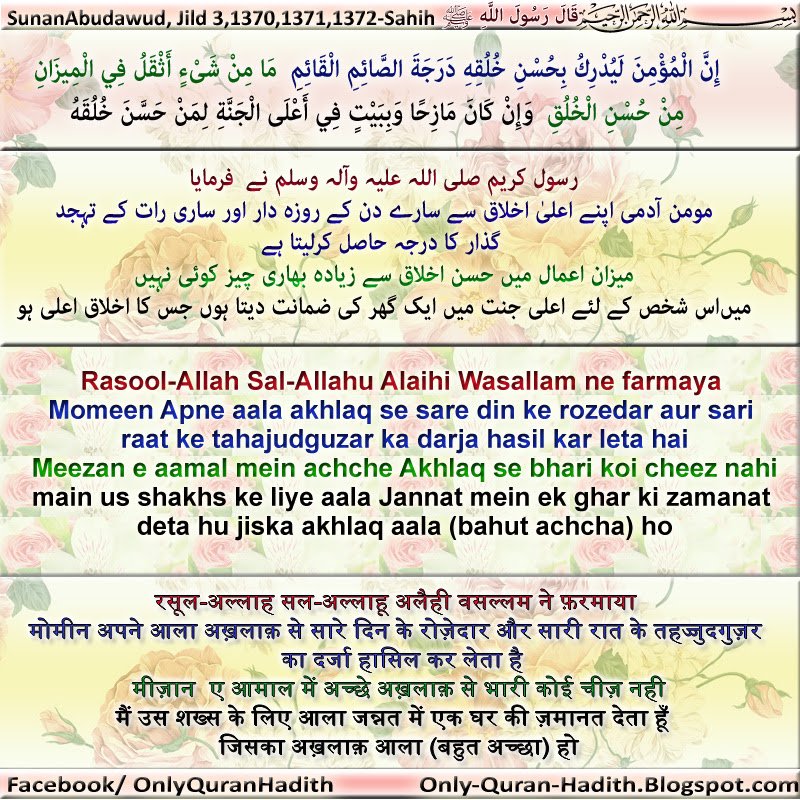 SunanAbudawud, Jild 3,1370,1371,1372-Sahih قَالَ رَسُولَ اللَّهِ ﷺ بِسْمِ اللَّهِ الرَّحْمَنِ الرَّحِيمِ
إِنَّ الْمُؤْمِنَ لَيُدْرِكُ بِحُسْنِ خُلُقِهِ دَرَجَةَ الصَّائِمِ الْقَائِمِ مَا مِنْ شَىْءٍ أَثْقَلُ فِي الْمِيزَانِ
مِنْ حُسْنِ الْخُلُقِ وَإِنْ كَانَ مَازِحًا وَبِبَيْتٍ فِي أَعْلَى الْجَنَّةِ لِمَنْ حَسَّنَ خُلُقَهُ
رسول کریم صلی اللہ علیہ وآلہ وسلم نے فرمایا
مومن آدمی اپنے اعلیٰ اخلاق سے سارے دن کے روزہ دار اور ساری رات کے تہجد
گذار کا درجہ حاصل کرلیتا ہے
میزان اعمال میں حسن اخلاق سے زیادہ بھاری چیز کوئی نہیں
میں‌اس شخص کے لئے اعلی جنت میں ایک گھر کی ضمانت دیتا ہوں جس کا اخلاق اعلی ہو
Rasool-Allah Sal-Allahu Alaihi Wasallam ne farmaya
Momeen Apne aala akhlaq se sare din ke rozedar aur sari
raat ke tahajudguzar ka darja hasil kar leta hai
Meezan e aamal mein achche Akhlaq se bhari koi cheez nahi
main us shakhs ke liye aala Jannat mein ek ghar ki zamanat
deta hu jiska akhlaq aala (bahut achcha) ho
रसूल-अल्लाह सल-अल्लाहू अलैही वसल्लम ने फ़रमाया
मोमीन अपने आला अख़लाक़ से सारे दिन के रोज़ेदार और सारी रात के तहज्जुदगुज़र
का दर्जा हासिल कर लेता है
मीज़ान ए आमाल में अच्छे अख़लाक़ से भारी कोई चीज़ नही
मैं उस शख्स के लिए आला जन्नत में एक घर की ज़मानत देता हूँ
जिसका अख़लाक़ आला (बहुत अच्छा) हो
Facebook/ OnlyQuranHadith Only-Quran-Hadith.Blogspot.com